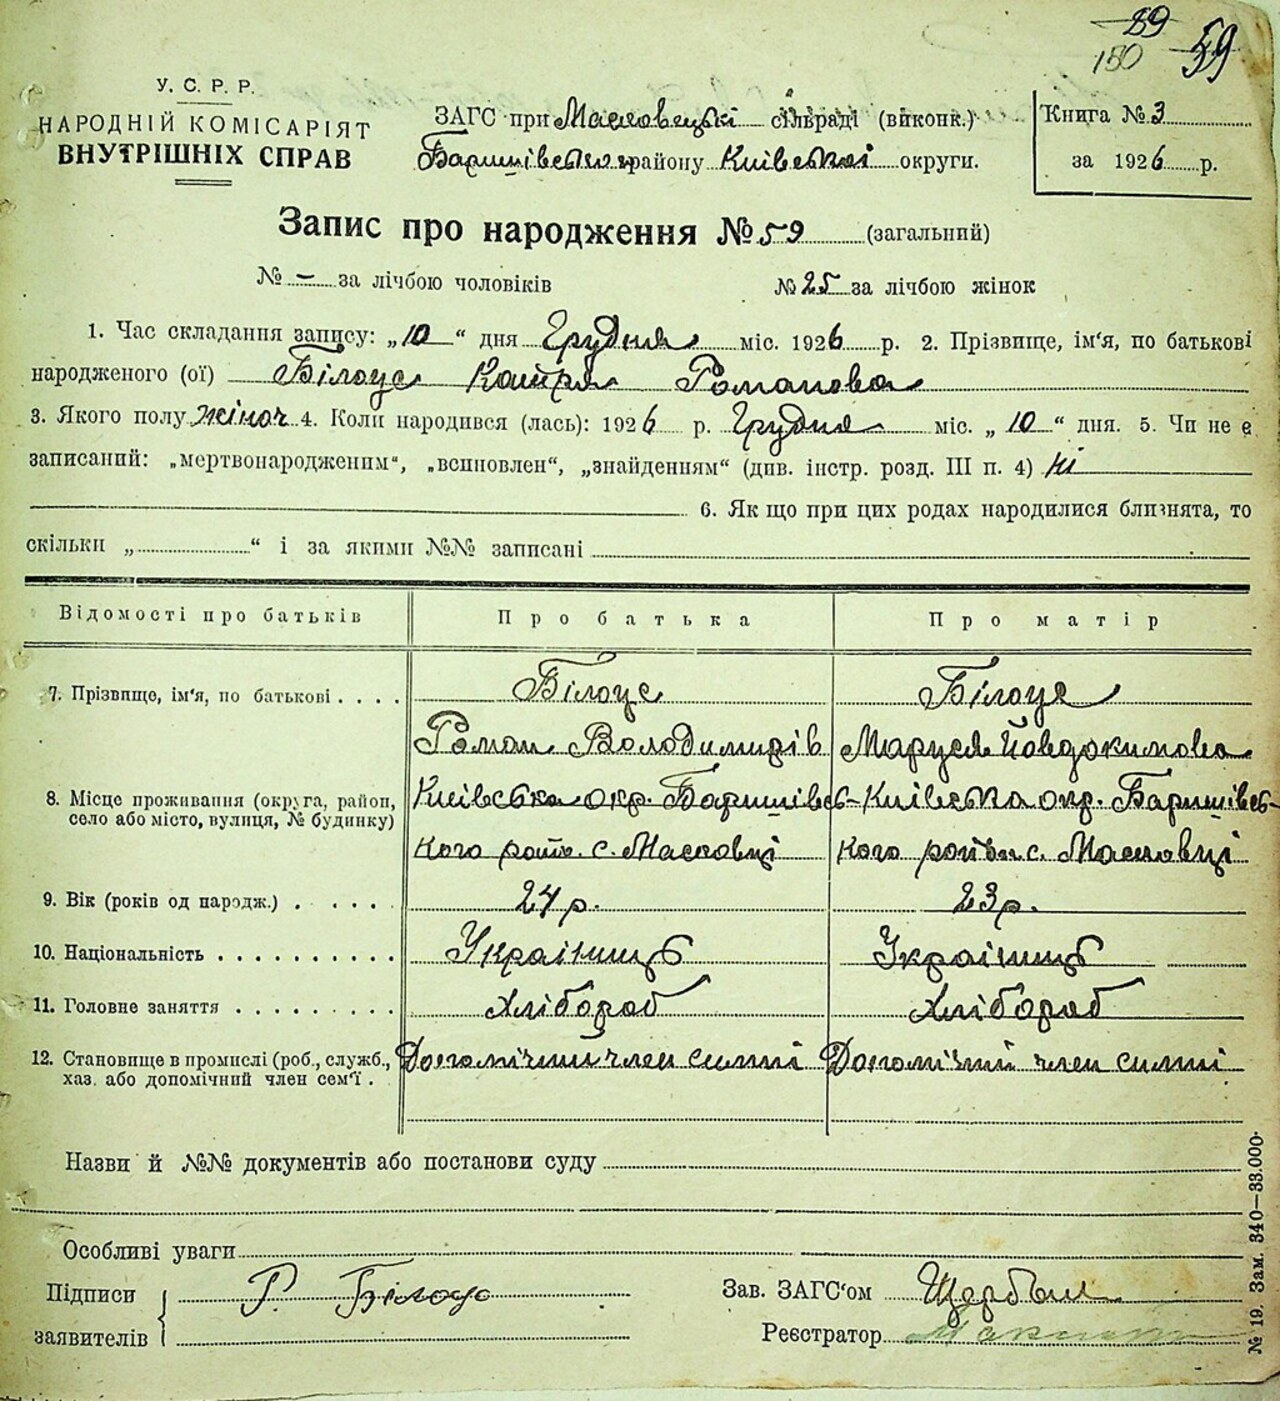 89
150 59
У. С. Р. Р.
НАРОДНІЙ КОМІСАРІЯТ
ВНУТРІШНІХ СПРАВ
ЗАГС при Масковецькі сільраді (виконк.)
Баришівськім району Київської округи.
Книга № 3
за 1926 р.
Запис про народження № 59 (загальний)
№ – за лічбою чоловіків № 25 за лічбою жінок
1. Час складання запису: „10“ дня Грудня міс. 1926 р. 2. Прізвище, ім'я, по батькові
народженого (ої) Білоус Катря Романова
3. Якого полу жіноч 4. Коли народився (лась): 1926 р. Грудня міс. „10“ дня. 5. Чи не є
записаний: „мертвонародженим“, „всиновлен“, „знайденням“ (див. інстр. розд. III п. 4) ні
6. Як що при цих родах народилися близнята, то
скільки „ “ і за якими №№ записані
Відомості про батьків Про батька Про матір
7. Прізвище, ім'я, по батькові Білоус Білоус
Роман Володимирів Маруся Йовдокимова
8. Місце проживання (округа, район, Київська окр. Баришівсь- Київська окр. Баришівсь-
село або місто, вулиця, № будинку)
кого рай. с. Масковці кого района с. Масковці
9. Вік (років од народж.) 24 р. 23 р.
10. Національність Україниць Україниць
11. Головне заняття Хлібороб Хлібороб
12. Становище в промислі (роб., служб., Допомічний член симні Допомічний член симні
хаз. або допомічний член сем'ї .
Назви й №№ документів або постанови суду
Особливі уваги
Підписи
заявителів
Р. Білоус
Зав. ЗАГС'ом Щербак
Реєстратор
№ 19. Зам. 340—33.000.